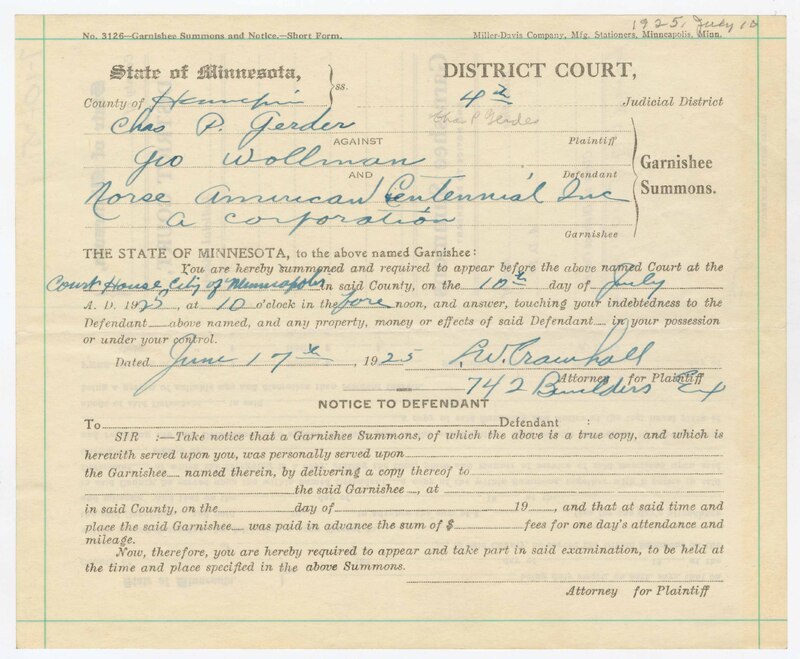 1925, July 10
No. 3126—Garnishee Summons and Notice.—Short Form. Miller-Davis Company, Mfg. Stationers, Minneapolis, Minn.
State of Minnesota, } ss. DISTRICT COURT,
County of Hennepin 4th Judicial District
Chas P. Gerdes
Chas P. Gerder Plaintiff
AGAINST
Geo Wollman Defendant
AND
Norse American Centennial Inc
a corporation Garnishee
Garnishee Summons.
THE STATE OF MINNESOTA, to the above named Garnishee:
You are hereby summoned and required to appear before the above named Court at the
Court House, City of Minneapolis in said County, on the 10th day of July
A. D. 1925, at 10 o'clock in the fore noon, and answer, touching your indebtedness to the
Defendant above named, and any property, money or effects of said Defendant in your possession
or under your control.
Dated June 17th, 1925 Crawhall
Attorney for Plaintiff
742 Builders Ex
NOTICE TO DEFENDANT
To Defendant :
SIR :—Take notice that a Garnishee Summons, of which the above is a true copy, and which is
herewith served upon you, was personally served upon
the Garnishee named therein, by delivering a copy thereof to
the said Garnishee, at
in said County, on the day of 19 , and that at said time and
place the said Garnishee was paid in advance the sum of $ fees for one day's attendance and
mileage.
Now, therefore, you are hereby required to appear and take part in said examination, to be held
at the time and place specified in the above Summons.
Attorney for Plaintiff